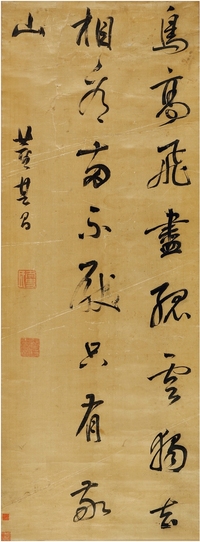 鳥高飛盡孤雲獨去
相看兩不厭只有敬
山
董其昌